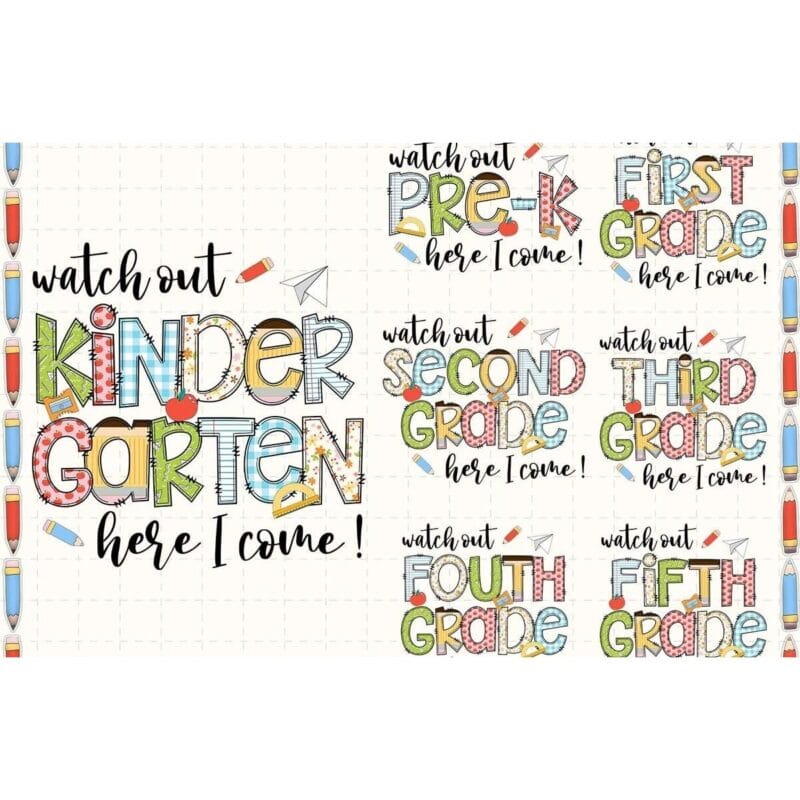 watch out
KiNDER
GaRTeN
here I come!
watch out
PRe-K
here I come!
FiRST
GRaDe
here I come!
watch out
SeCOND
GRaDe
here I come!
watch out
THiRD
GRaDe
here I come!
watch out
FOUTH
GRaDe
watch out
FiFTH
GRaDe